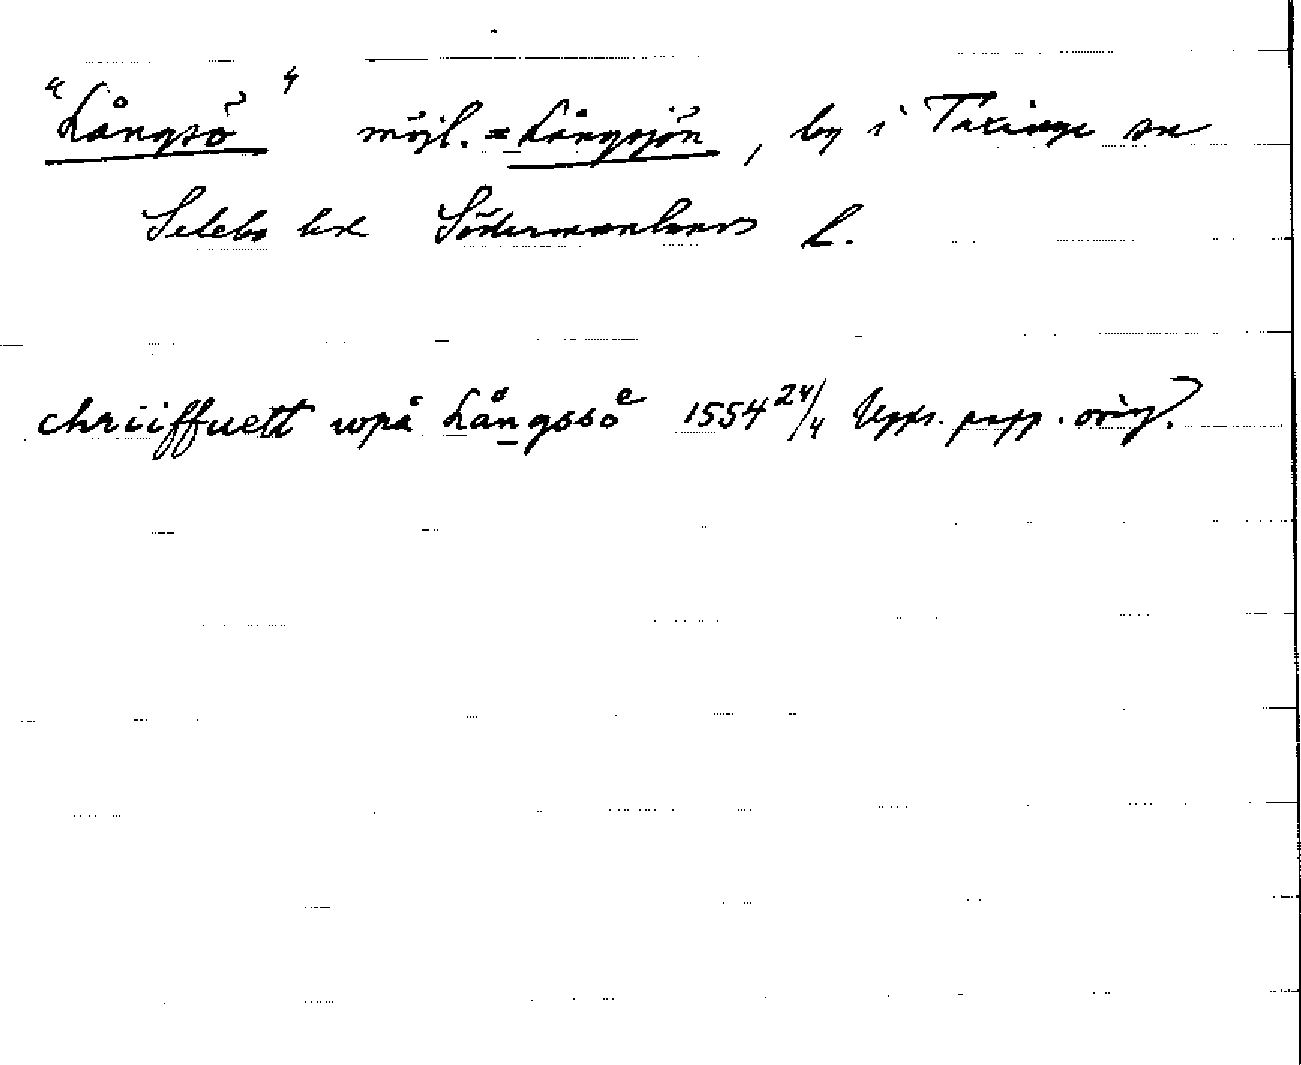 "Långsö" möjl. = Långsjön, by i Taxinge sn
Selebo hd Södermanlands L.
chriiffuett wpå Långssoͤ 1554 24/4 Upps. papp. orig.